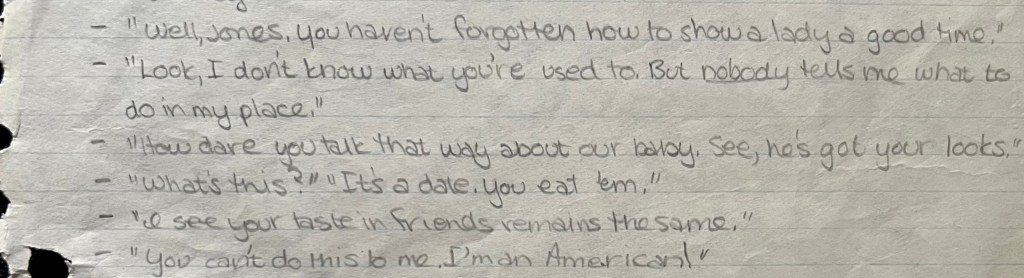 - "Well, Jones, you haven't forgotten how to show a lady a good time."
- "Look, I don't know what you're used to. But nobody tells me what to
do in my place."
- "How dare you talk that way about our baby. See, he's got your looks."
- "What's this?" "It's a date. You eat 'em."
- "I see your taste in friends remains the same."
- "You can't do this to me. I'm an American!"